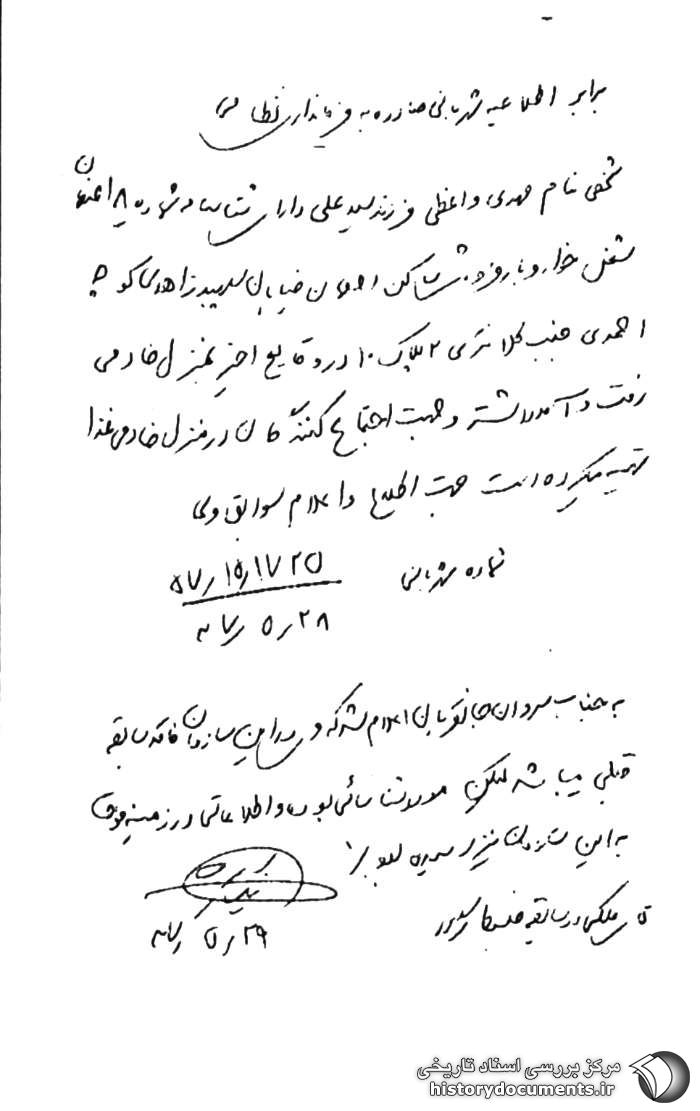 برابر اطلاعیه شهربانی صادره به فرمانداری نظامی
شخصی بنام مهدی واعظی فرزند سید علی دارای شناسنامه شماره ۸ اصفهان
شغل خواروبار فروش ساکن اصفهان خیابان سپهبد زاهدی کوچه
احمدی جنب کلانتری ۲ پلاک ۱۰ در وقایع اخیر بمنزل خادمی
رفت و آمد داشته و جهت اجتماع کنندگان در منزل خادمی غذا
تهیه میکرده است جهت اطلاع و اعلام سوابق وی
شماره شهربانی
۵۷ر۱۵ر۱۷۲۵
۲۸ر۵ر۳۷
به جناب سروان اعلام شد که وی در این سازمان فاقد سابقه
قبلی میباشد لیکن مورد شناسائی بوده و اطلاعاتی در زمینه فوق
به این سازمان نیز رسیده بود
در سابقه ضبط شود
۲۹ر۵ر۳۷
مرکز بررسی اسناد تاریخی
historydocuments.ir